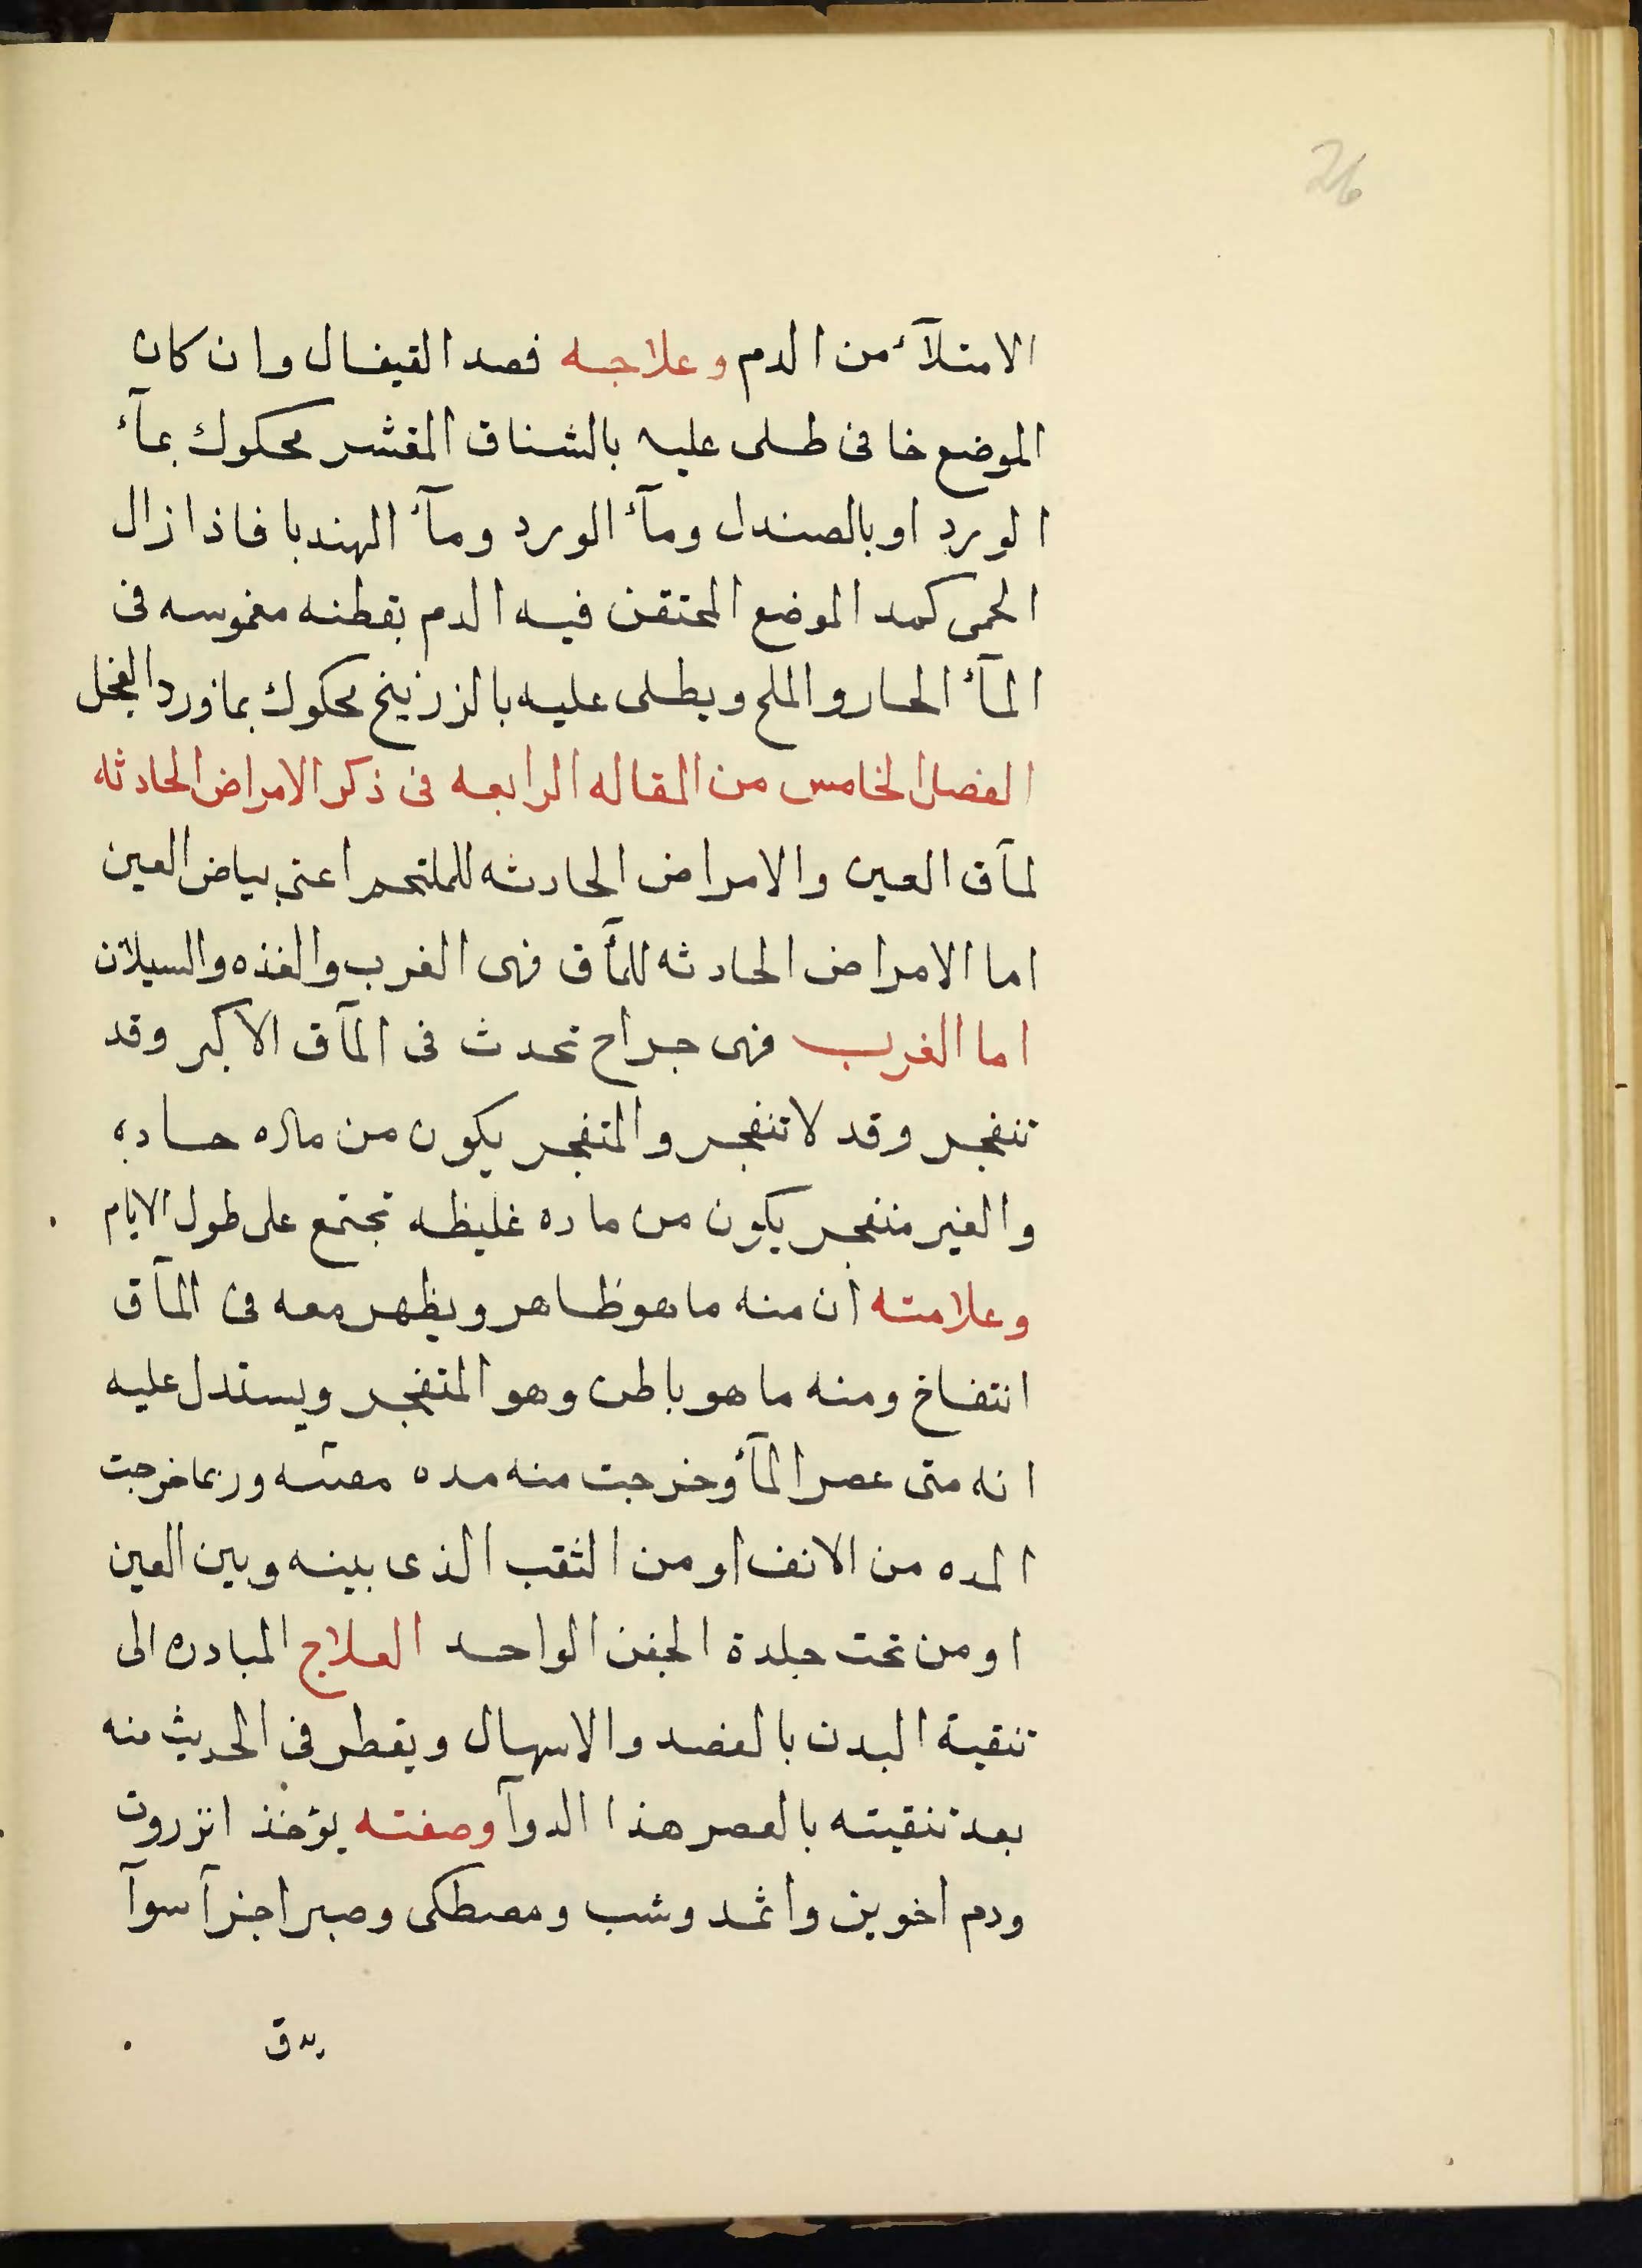 26
الامتلآء من الدم وعلاجه فصد القيفال وان كان
الموضع خافى طلى عليه بالشناق المقشر محكوك بمآء
الورد او بالصندل ومآء الورد ومآء الهندبا فاذا زال
الحمى كمد الموضع المحتقن فيه الدم بقطنه مغموسه فى
المآء الحار والملح ويطلى عليه بالزرنيخ محكوك بماورد الفجل
الفصل الخامس من المقاله الرابعه فى ذكر الامراض الحادثه
لمآق العين والامراض الحادثه للملتحم اعنى بياض العين
اما الامراض الحادثه للمآق فهى الغرب والغذه والسيلان
اما الغرب فهى جراح تحدث فى المآق الاكبر وقد
تنفجر وقد لا تنفجر والمتفجر يكون من ماده حاده
والغير متفجر يكون من ماده غليظه تجتمع على طول الايام
وعلامته ان منه ما هو ظاهر ويظهر معه فى المآق
انتفاخ ومنه ما هو باطن وهو المتفجر ويستدل عليه
انه متى عصر المآق خرجت منه مده وربما خرجت
المده من الانف او من الثقب الذى بينه وبين العين
او من تحت جلدة الجفن الواحد العلاج المبادره الى
تنقية البدن بالفصد والاسهال ويقطر فى الحديث منه
بعد تنقيته بالعصر هذا الدوآ وصفته يؤخذ انزروت
ودم اخوين واثمد وشب ومصطكى وصبر اجزآ سوآ